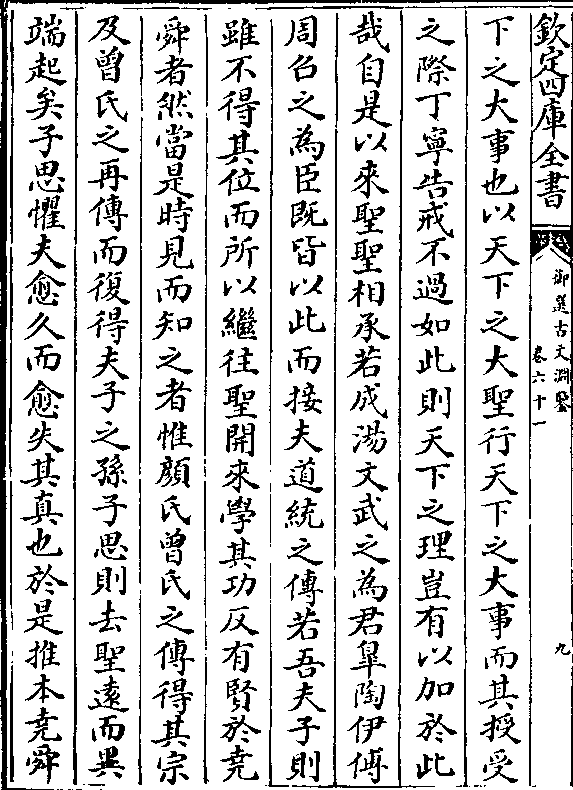 欽定四庫全書
御選古文淵鑒
卷六十一
九
下之大事也以天下之大聖行天下之大事而其授受
之際丁寧告戒不過如此則天下之理豈有以加於此
哉自是以來聖聖相承若成湯文武之為君臯陶伊傅
周召之為臣既皆以此而接夫道統之傳若吾夫子則
雖不得其位而所以繼往聖開來學其功反有賢於堯
舜者然當是時見而知之者惟顔氏曾氏之傳得其宗
及曾氏之再傳而復得夫子之孫子思則去聖遠而異
端起矣子思懼夫愈久而愈失其真也於是推本堯舜